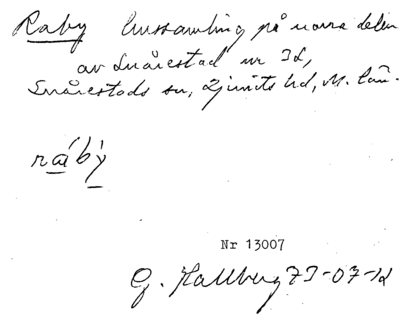 Raby Hussamling på norra delen
av Snårestad nr 32,
Snårestads sn, Ljunits hd, M. län.
raíbỳ
Nr 13007
G. Hallberg 73-07-12